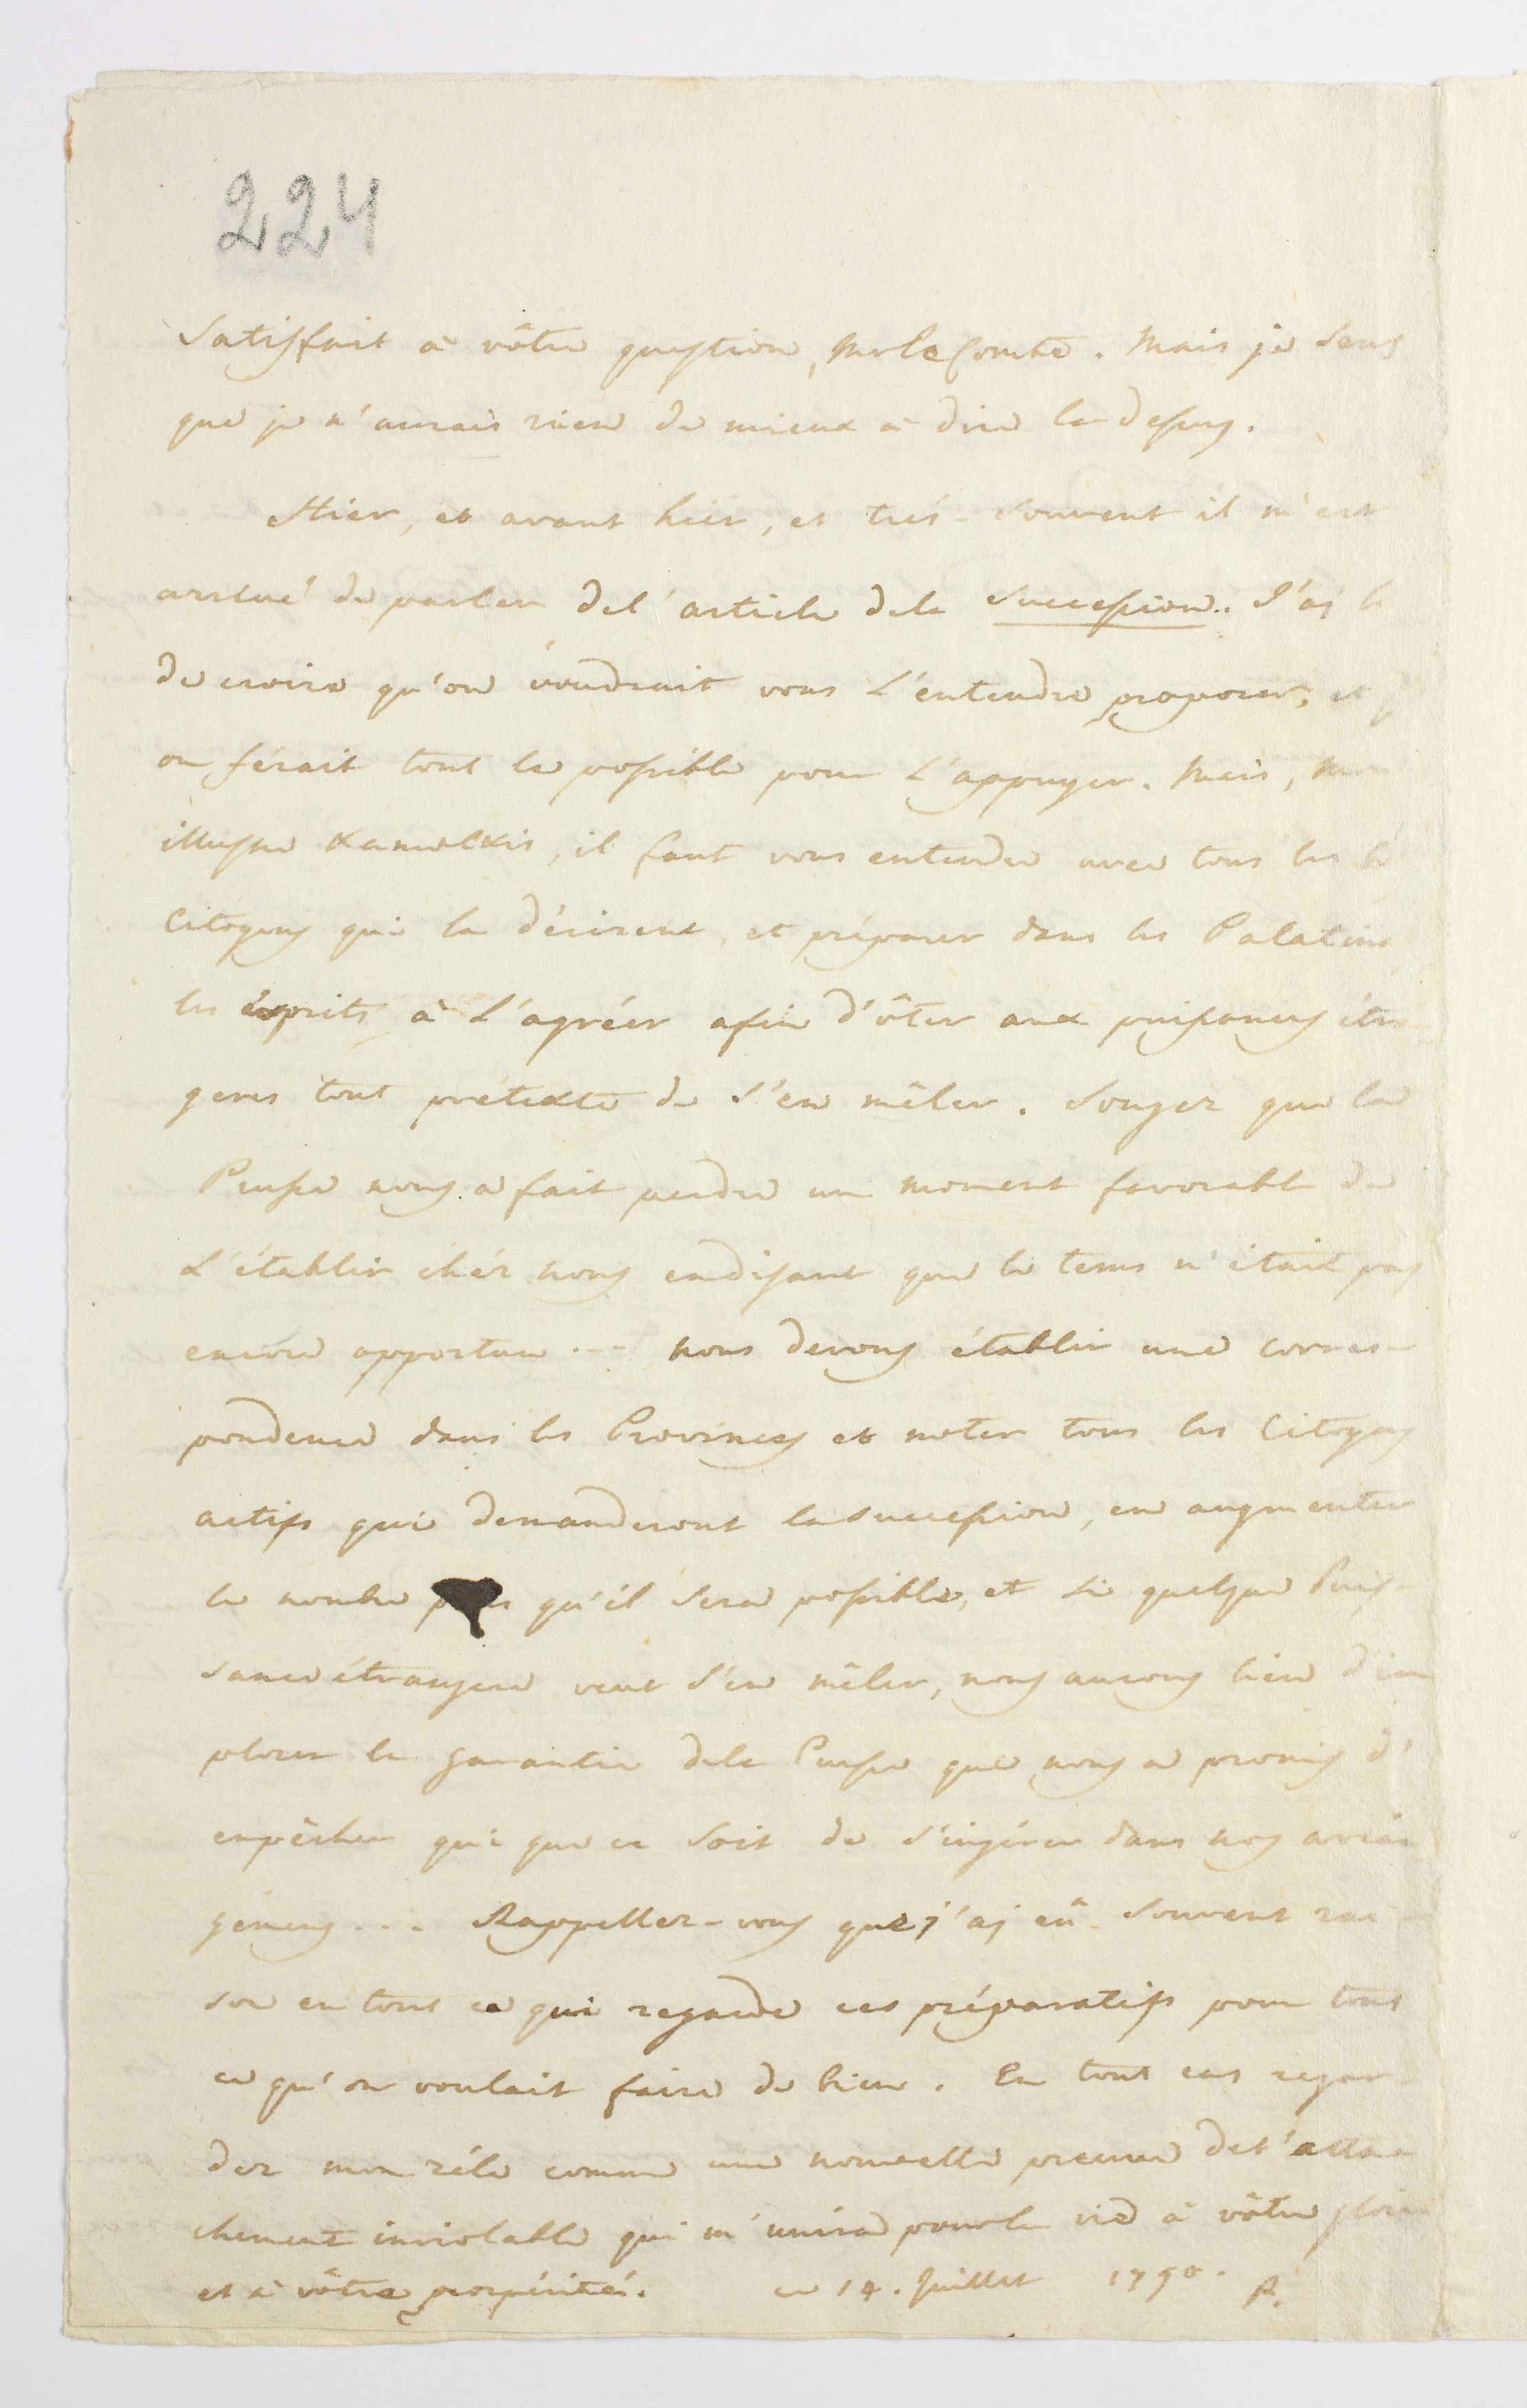 224
satisfait à vôtre question, Mr le Comte. Mais je sens
que je n'aurais rien de mieux à dire la dessus.
Hier, et avant hier, et très-souvent il m'est
arrivé de parler del'article dela succession. J'aj
de croire qu'on voudrait vous l'entendre proposer, et
on férait tout le possible pour l'appuyer. Mais, mon
illustre, il faut vous entendre avec tous les
Citoyens qui la désirent, et préparer dans les Palatina
les ésprits à l'agréer afin d'ôter aux puissances étra
geres tout prétexte de s'en mêler. Songez que la
Prusse nous a fait perdre un moment favorable de
l'établir chéz nous endisant que le tems n'était pas
encore opportun... nous devons établir une corres-
pondence dans les Provinces et noter tous les Citoyens
actifs qui demanderont lasuccession, en augmenter
le nombre qu'il sera possible, et si quelque Puis-
sance étrangere veut s'en mêler, nous aurons lieu d'im
plorer la garantie dela Prusse qui nous a promis d'
empêcher qui que ce soit de s'ingérer dans nos arran
gemens... Rappellez-vous que j'aj eû souvent rai
son en tout ce qui regarde ces préparatifs pour tout
ce qu'on voulait faire de bien. En tout cas regar-
dez mon zéle comme une nouvelle preuve del'atta
chement inviolable qui m'unira pourla vie à vôtre gloire
et à vôtre prospérité. ce 14. Juillet 1790. P.